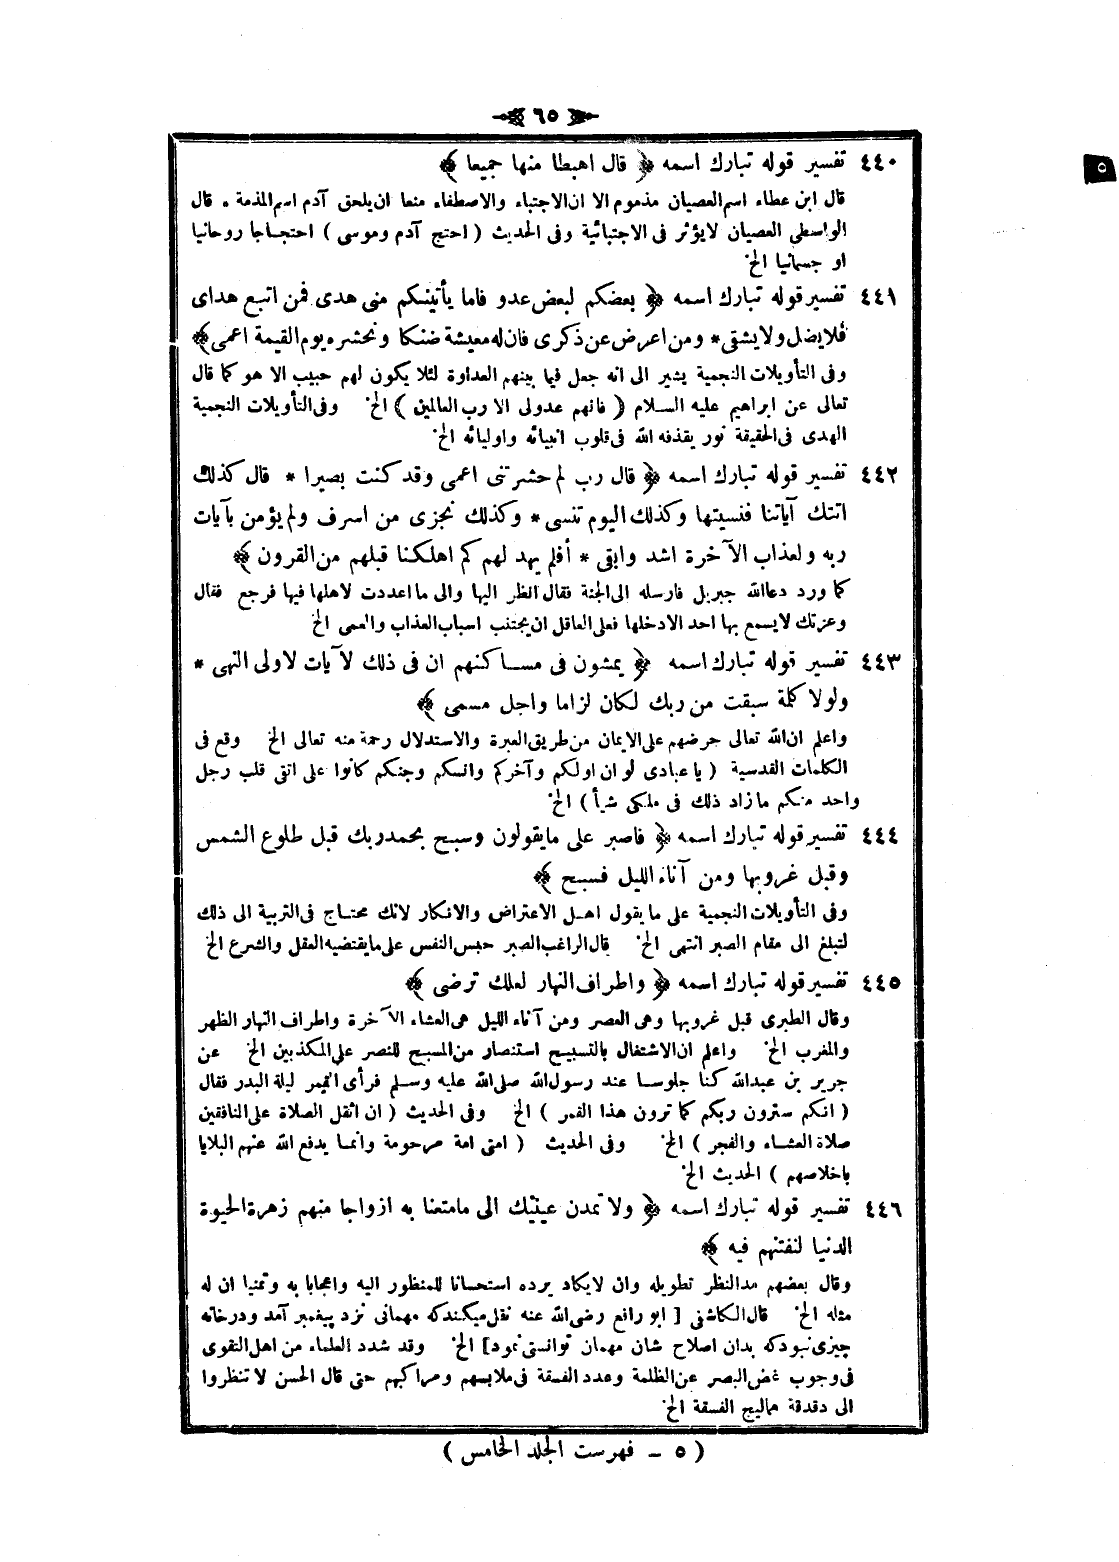 ٦٥
٥
٤٤٠ تفسير قوله تبارك اسمه ﴿ قال اهبطا منها جميعا ﴾
قال ابن عطاء اسم العصيان مذموم الا ان الاجتباء والاصطفاء منعا ان يلحق آدم اسم المذمة . قال
الواسطى العصيان لا يؤثر فى الاجتبائية وفى الحديث ( احتج آدم وموسى ) احتجاجا روحانيا
او جسمانيا الخ
٤٤١ تفسير قوله تبارك اسمه ﴿ بعضكم لبعض عدو فاما يأتينكم منى هدى فمن اتبع هداى
فلا يضل ولا يشقى * ومن اعرض عن ذكرى فان له معيشة ضنكا ونحشره يوم القيمة اعمى ﴾
وفى التأويلات النجمية يشير الى انه جعل فيما بينهم العداوة لئلا يكون لهم حبيب الا هو كما قال
تعالى عن ابراهيم عليه السلام ( فانهم عدولى الا رب العالمين ) الخ وفى التأويلات النجمية
الهدى فى الحقيقة نور يقذفه الله فى قلوب انبيائه واوليائه الخ
٤٤٢ تفسير قوله تبارك اسمه ﴿ قال رب لم حشرتنى اعمى وقد كنت بصيرا * قال كذلك
اتتك آياتنا فنسيتها وكذلك اليوم تنسى * وكذلك نجزى من اسرف ولم يؤمن بآيات
ربه ولعذاب الآخرة اشد وابقى * أفلم يهد لهم كم اهلكنا قبلهم من القرون ﴾
كما ورد دعا الله جبريل فارسله الى الجنة فقال انظر اليها والى ما اعددت لاهلها فيها فرجع فقال
وعزتك لا يسمع بها احد الا دخلها فعلى العاقل ان يجتنب اسباب العذاب والعمى الخ
٤٤٣ تفسير قوله تبارك اسمه ﴿ يمشون فى مساكنهم ان فى ذلك لآيات لاولى النهى *
ولولا كلمة سبقت من ربك لكان لزاما واجل مسمى ﴾
واعلم ان الله تعالى حرضهم على الايمان من طريق العبرة والاستدلال رحمة منه تعالى الخ وقع فى
الكلمات القدسية ( يا عبادى لو ان اولكم وآخركم وانسكم وجنكم كانوا على اتقى قلب رجل
واحد منكم ما زاد ذلك فى ملكى شيأ ) الخ
٤٤٤ تفسير قوله تبارك اسمه ﴿ فاصبر على ما يقولون وسبح بحمد ربك قبل طلوع الشمس
وقبل غروبها ومن آناء الليل فسبح ﴾
وفى التأويلات النجمية على ما يقول اهل الاعتراض والانكار لانك محتاج فى التربية الى ذلك
لتبلغ الى مقام الصبر انتهى الخ قال الراغب الصبر حبس النفس على ما يقتضيه العقل والشرع الخ
٤٤٥ تفسير قوله تبارك اسمه ﴿ واطراف النهار لعلك ترضى ﴾
وقال الطبرى قبل غروبها وهى العصر ومن آناء الليل هى العشاء الآخرة واطراف النهار الظهر
والمغرب الخ واعلم ان الاشتغال بالتسبيح استنصار من المسبح للنصر على المكذبين الخ عن
جرير بن عبدالله كنا جلوسا عند رسول الله صلى الله عليه وسلم فرأى القمر ليلة البدر فقال
( انكم سترون ربكم كما ترون هذا القمر ) الخ وفى الحديث ( ان اثقل الصلاة على المنافقين
صلاة العشاء والفجر ) الخ وفى الحديث ( امتى امة مرحومة وانما يدفع الله عنهم البلايا
باخلاصهم ) الحديث الخ
٤٤٦ تفسير قوله تبارك اسمه ﴿ ولا تمدن عينيك الى ما متعنا به ازواجا منهم زهرة الحيوة
الدنيا لنفتنهم فيه ﴾
وقال بعضهم مد النظر تطويله وان لا يكاد يرده استحسانا للمنظور اليه واعجابا به وتمنيا ان له
مثله الخ قال الكاشفى [ ابو رافع رضى الله عنه نقل ميكند كه مهمانى نزد پيغمبر آمد ودرخانه
چيزى نبود كه بدان اصلاح شان مهمان توانستى نمود] الخ وقد شدد العلماء من اهل التقوى
فى وجوب غض البصر عن الظلمة وعدد الفسقة فى ملابسهم ومراكبهم حتى قال الحسن لا تنظروا
الى دقدقة هماليج الفسقة الخ
( ٥ ــ فهرست الجلد الخامس )